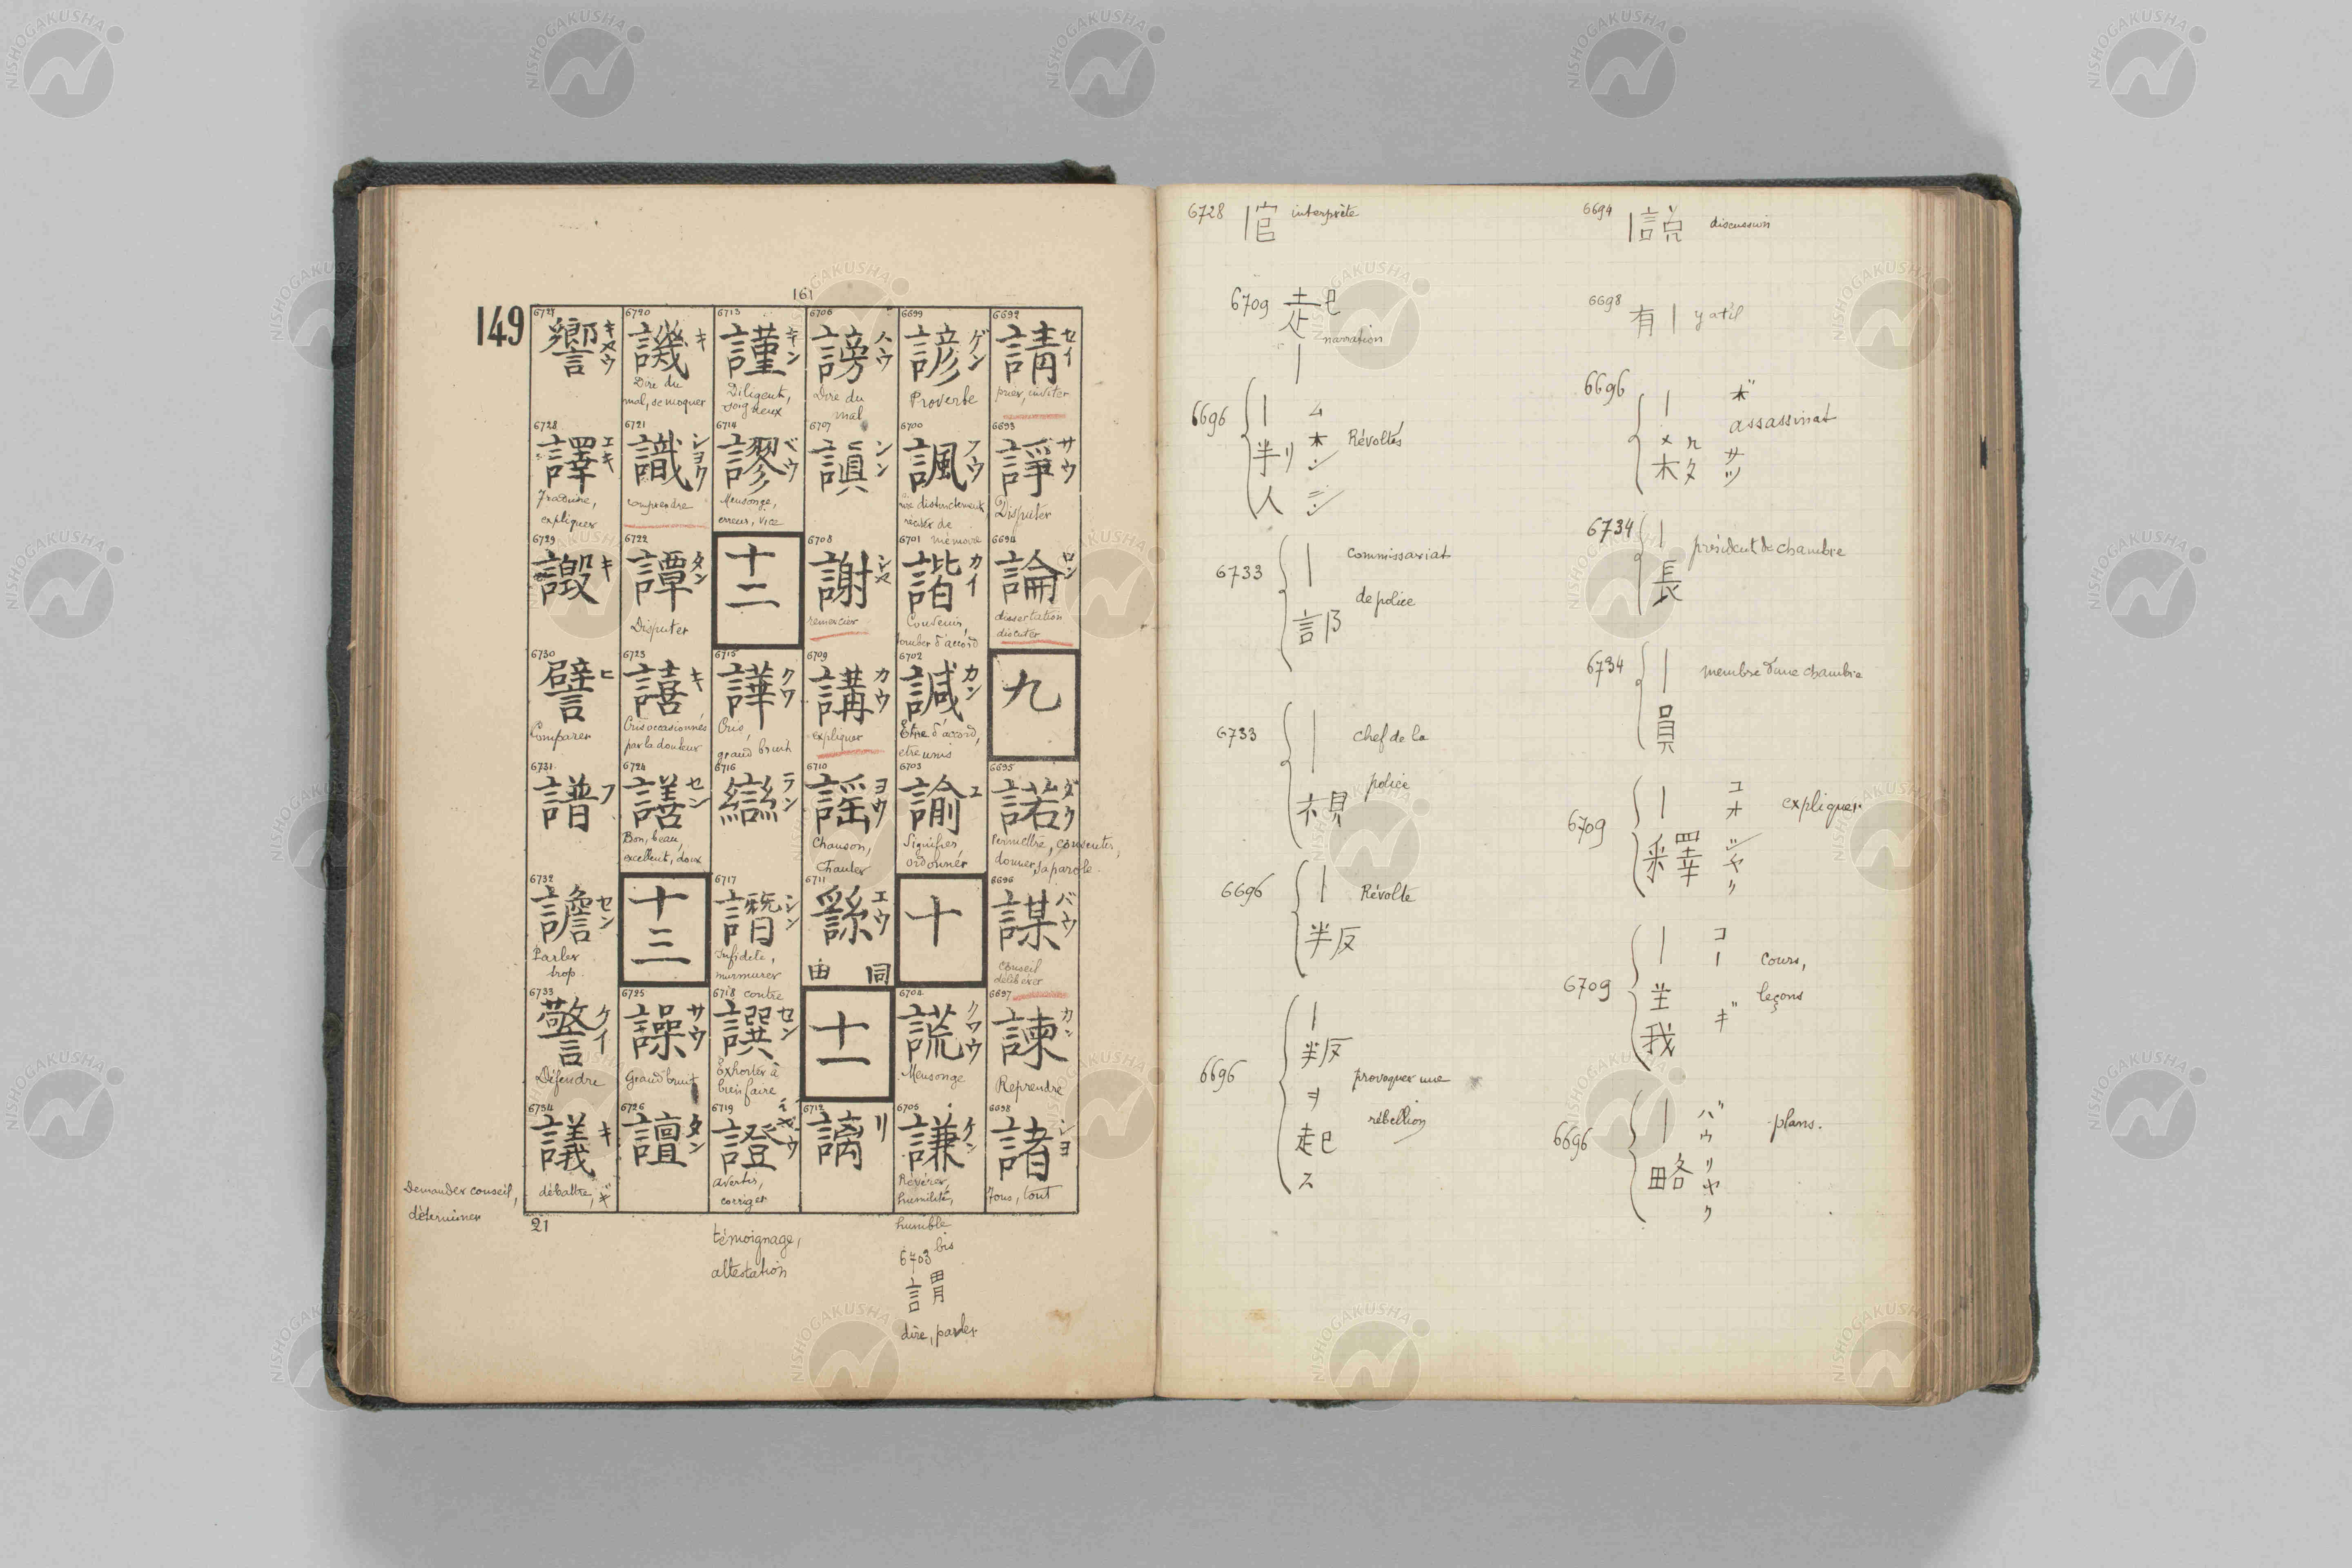 149
161
6692
請
セイ
prier, inviter
6693
諍
サウ
Disputer
6694
論
ロン
dissertation
discuter
九
6695
諾
ダク
Permettre, consentir,
donner sa parole.
6696
謀
バウ
Conseil
délibérer
6697
諫
カン
Reprendre
6698
諸
シヨ
Tous, tout
6699
諺
ゲン
Proverbe
6700
諷
フウ
lire distinctement,
réciter de
mémoire
6701
諧
カイ
Convenir,
tomber d'accord
6702
諴
カン
Etre d'accord,
etre unis
6703
諭
ユ
Signifier,
ordonner
十
6704
謊
クワウ
Mensonge
6705
謙
ケン
Révérer,
humilité,
humble
6703 bis
謂
dire, parler
6706
謗
ハウ
Dire du
mal
6707
謓
シン
6708
謝
シヤ
remercier
6709
講
カウ
expliquer
6710
謡
ヨウ
Chanson,
Chanter
6711
繇
エウ
由 同
十一
6712
謧
リ
6713
謹
キン
Diligent,
soigneux
6714
謬
ベウ
Mensonge,
erreur, vice
十二
6715
譁
クワ
Cris,
grand bruit
6716
䜌
ラン
6717
譖
シン
Infidèle,
murmurer
contre
6718
譔
セン
Exhorter à
bien faire
6719
證
avertir,
corriger
témoignage,
attestation
6720
譏
キ
Dire du
mal, se moquer
6721
識
シヨク
comprendre
6722
譚
タン
Disputer
6723
譆
キ
Cris occasionnés
par la douleur
6724
譱
セン
Bon, beau,
excellent, doux
十三
6725
譟
サウ
Grand bruit
6726
譠
タン
6727
響
キヤウ
6728
譯
エキ
Traduire,
expliquer
6729
譭
キ
6730
譬
ヒ
Comparer
6731
譜
フ
6732
譫
セン
Parler
trop
6733
警
ケイ
Défendre
6734
議
キ
débattre, ギ
Demander conseil,
déterminer
21
6728 ｜官 interprète
6709 起｜ narration
6696 ｜半リ人 ムホンニン Révoltés
6733 ｜部 commissariat
de police
6733 ｜視 chef de la
police
6696 ｜叛 Révolte
6696 ｜叛ヲ起ス provoquer une
rébellion
6694 ｜説 discussion
6698 有｜ y a t'il
6696 ｜殺 ボサツ assassinat
6734 ｜長 président de chambre
6734 ｜員 membre d'une chambre
6709 ｜釋 コオシヤク expliquer
6709 ｜義 コーギ cours,
leçons
6696 ｜略 バウリヤク plans.
NISHOGAKUSHA